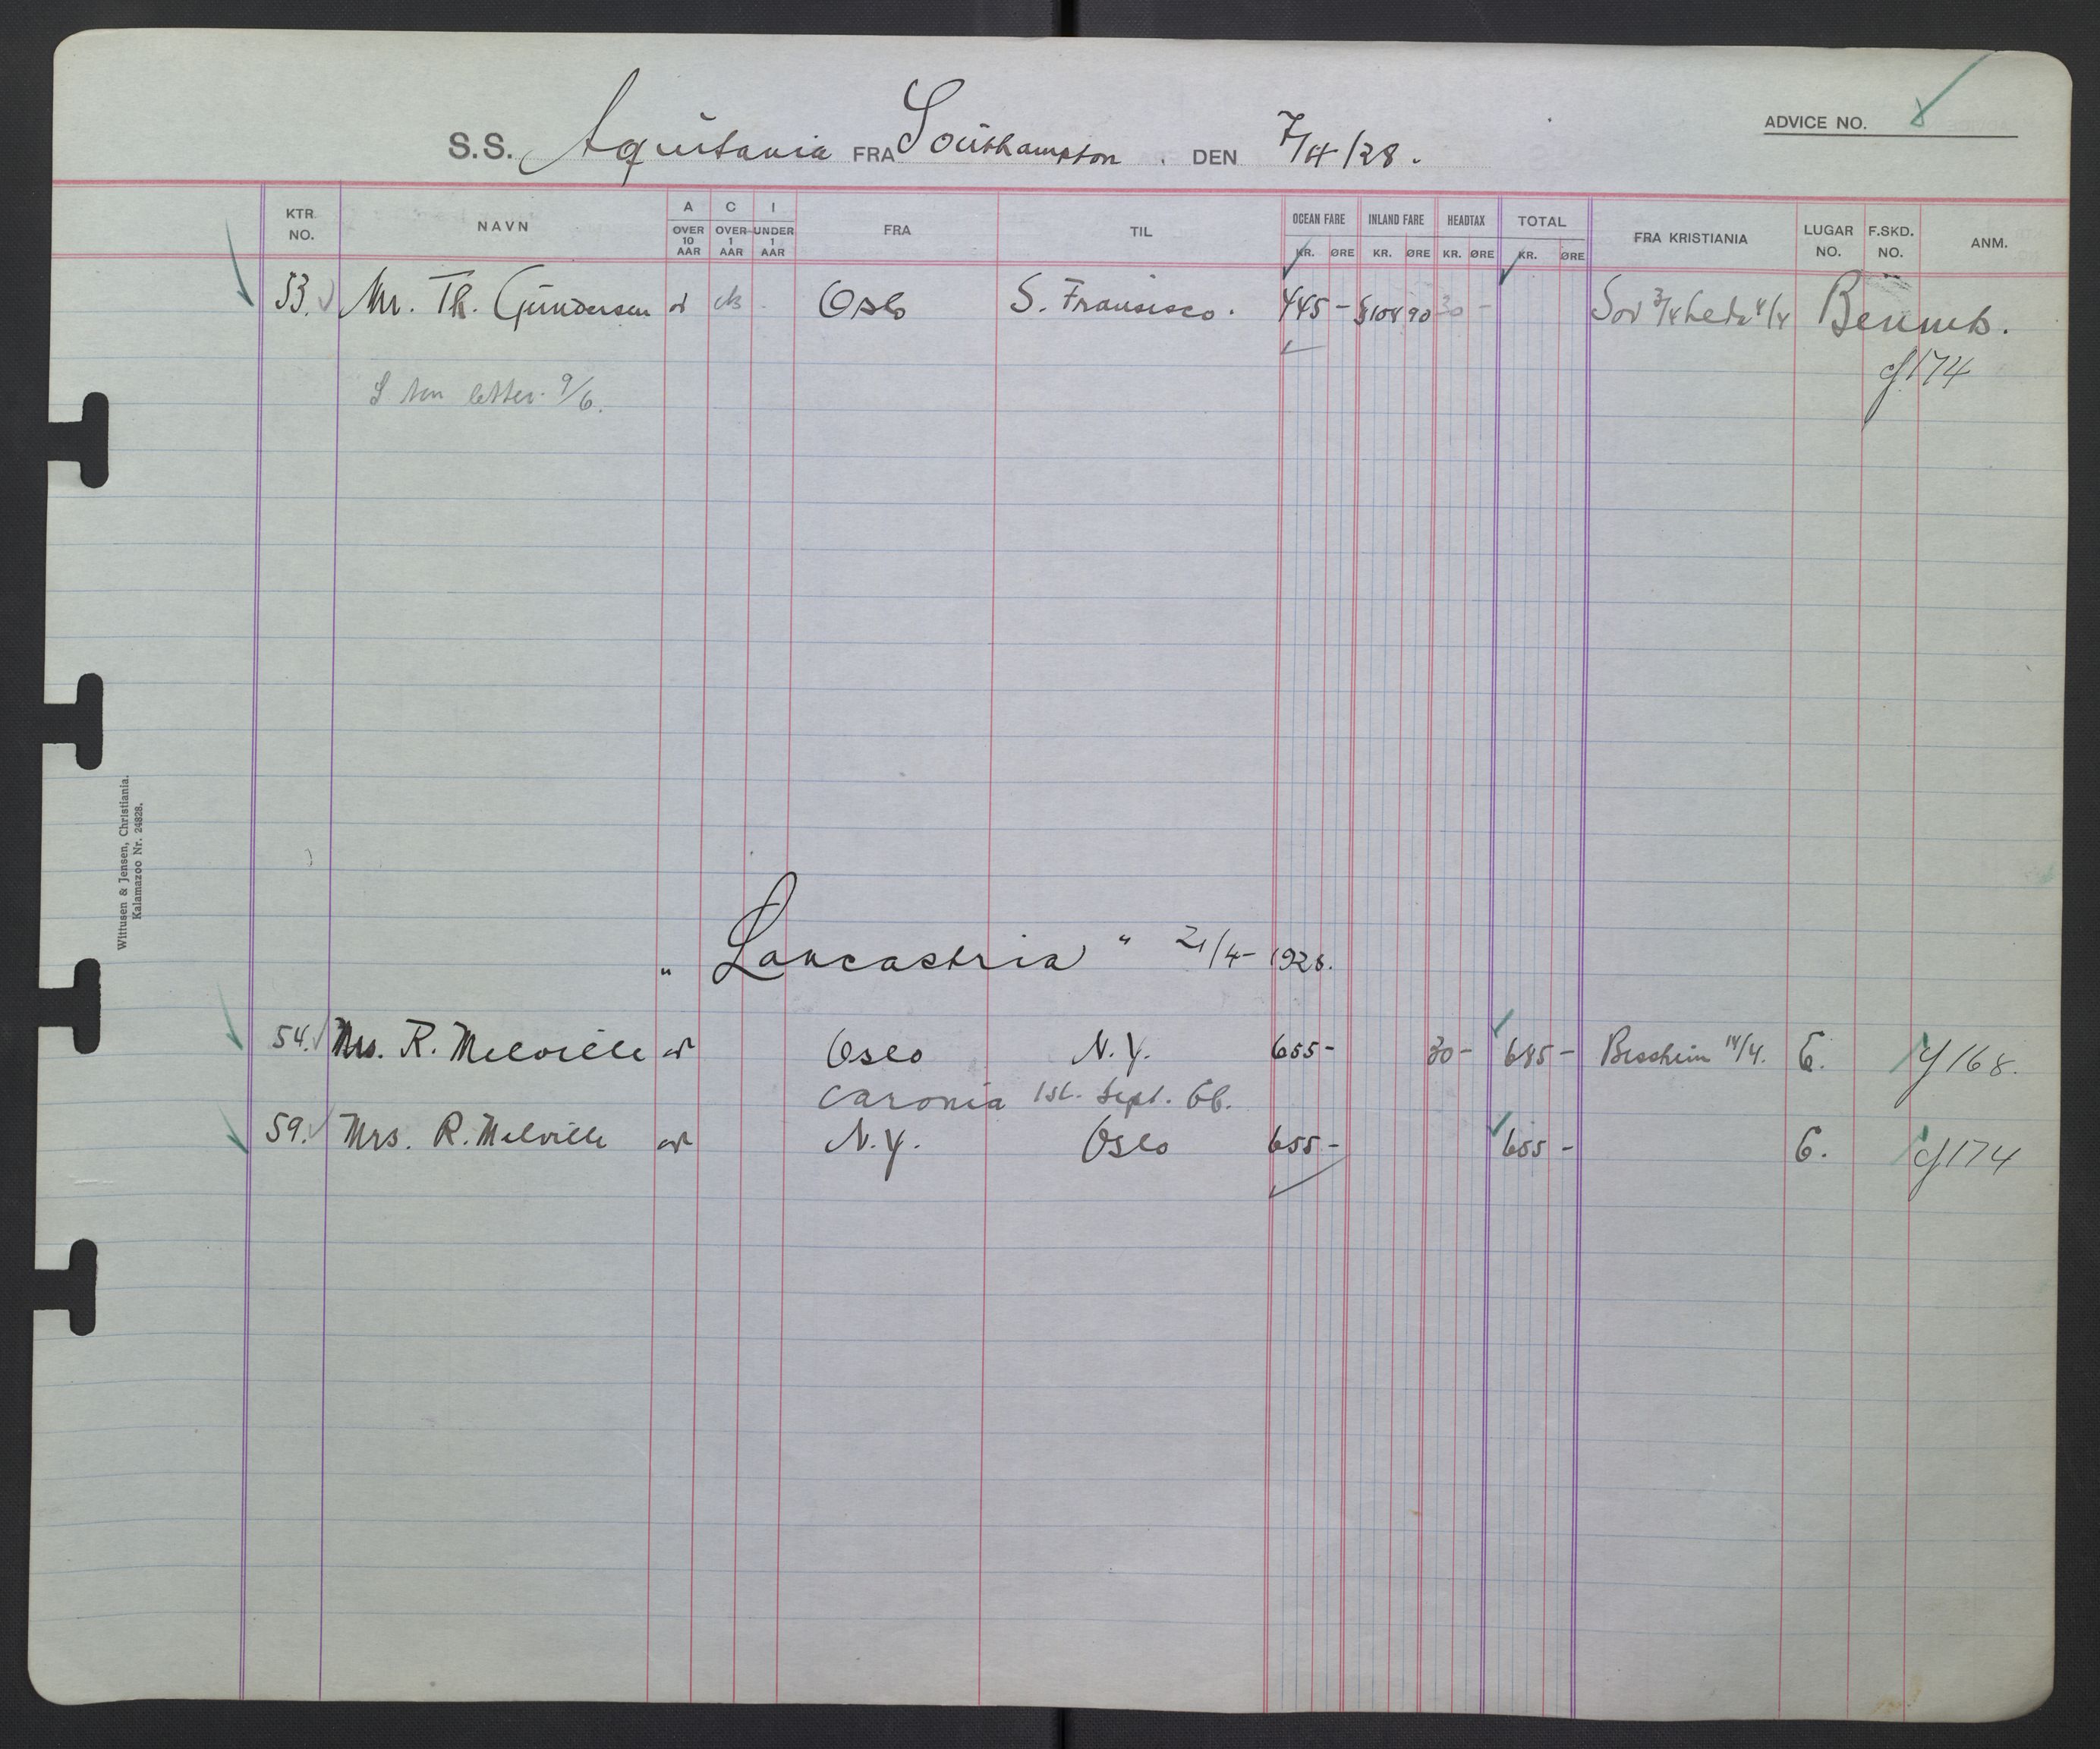 ADVICE NO. 8
S.S. Aquitania FRA Southampton . DEN 7/4/28.
KTR. NO. NAVN A OVER 10 AAR C OVER 1 AAR I UNDER 1 AAR FRA TIL OCEAN FARE KR. ØRE INLAND FARE KR. ØRE HEADTAX KR. ØRE TOTAL KR. ØRE FRA KRISTIANIA LUGAR NO. F.SKD. NO. ANM.
53. Mr. Th. Gundersen Oslo S. Fransisco. 445 - $108 90 30 -
letter 9/6. 174
Wittusen & Jensen, Christiania.
Kalamazoo Nr. 24828.
" Lancastria " 21/4 - 1928.
54. Mrs. R. Melville Oslo N.Y. 655 - 30 - 685 - Bessheim 14/4. 168.
Caronia 1st. Sept.
59. Mrs. R. Melville N.Y. Oslo 655 - 655 - 174